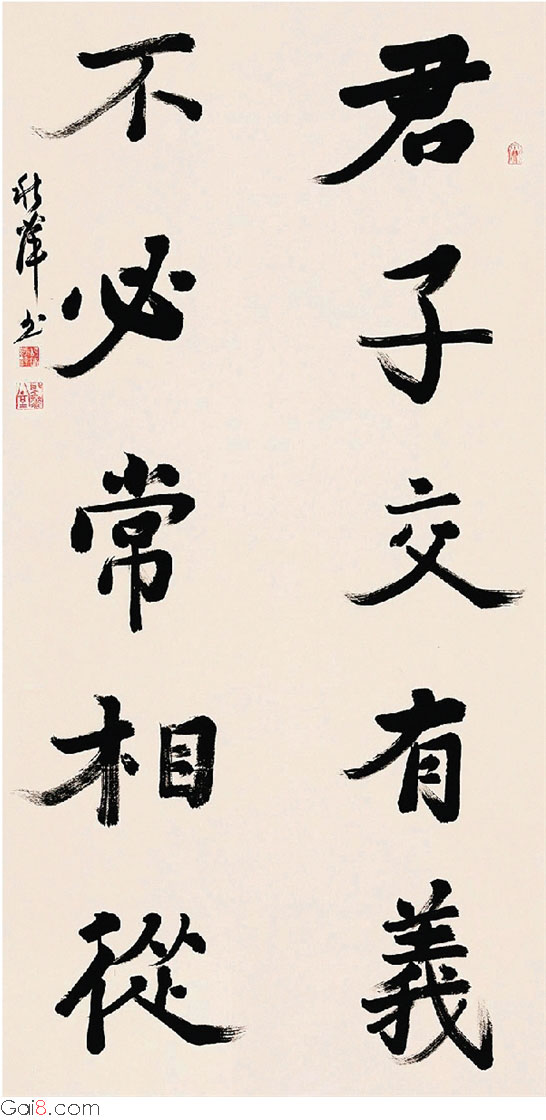 君子交有義
不必常相從
Gai8.com